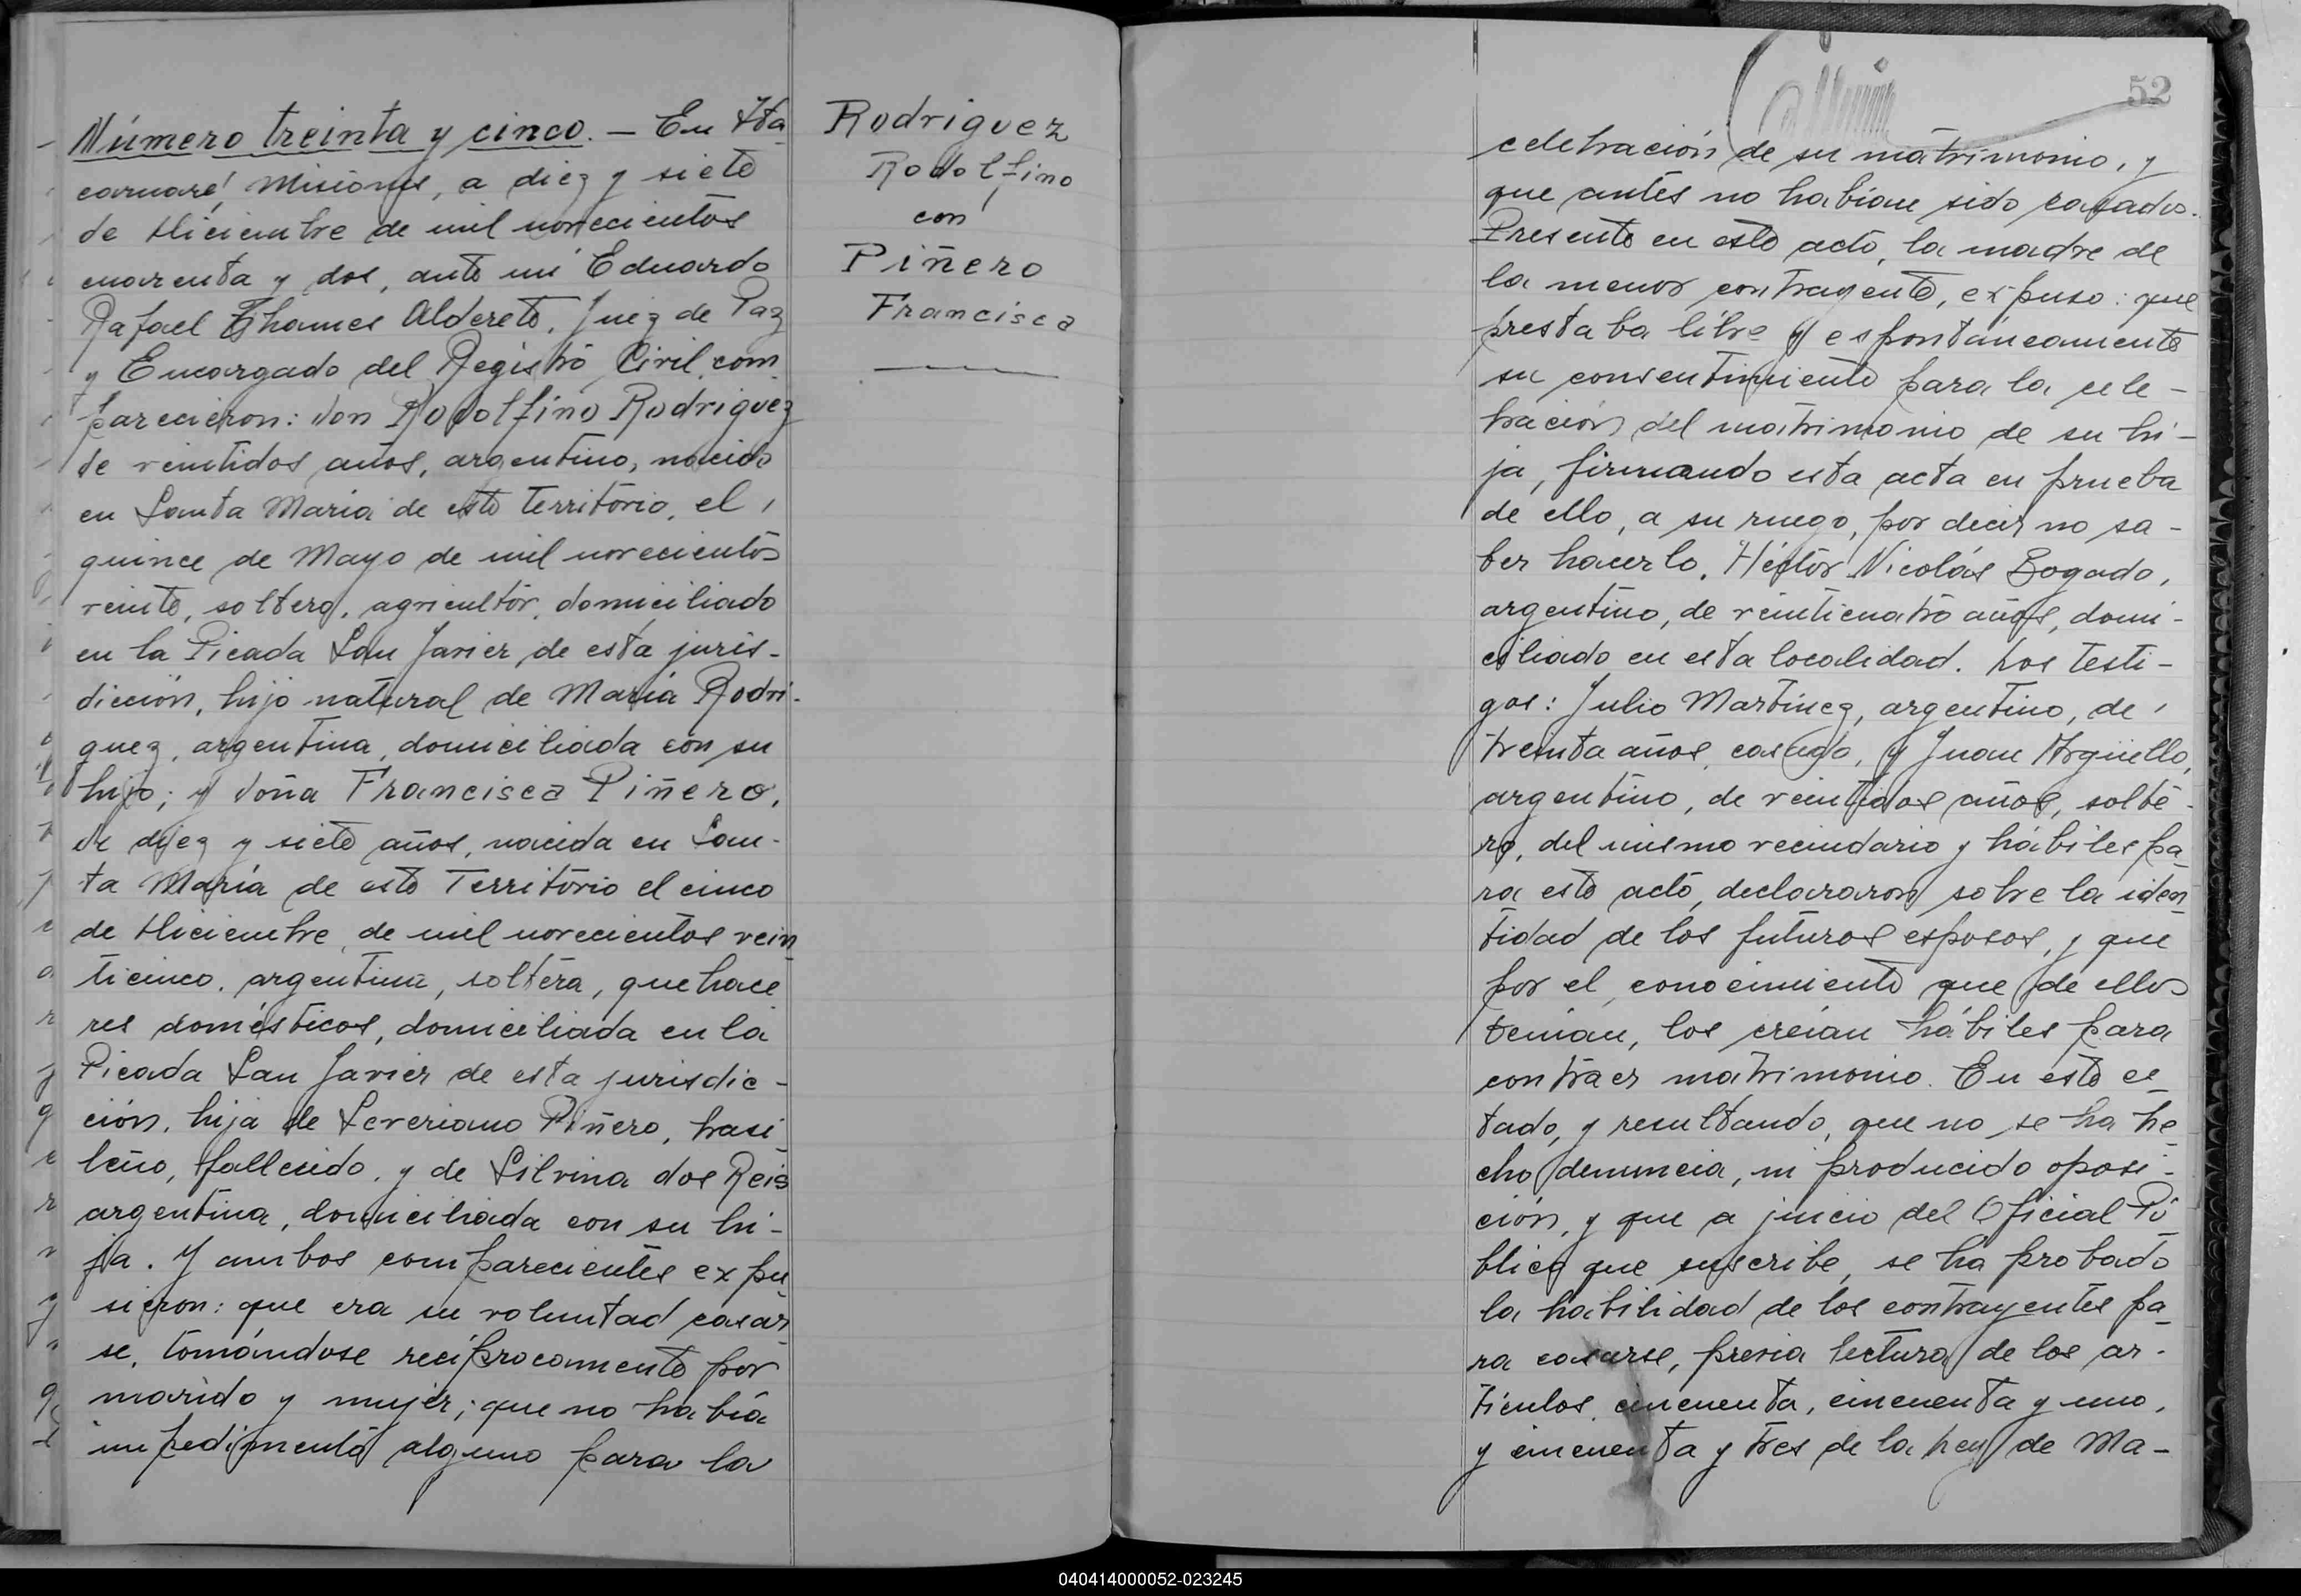 Número treinta y cinco. — En Ita
caruaré, Misiones, a diez y siete
de Diciembre de mil novecientos
cuarenta y dos, ante mí Eduardo
Rafael Thames Alderete, Juez de Paz
y Encargado del Registro Civil, com
parecieron: don Rodolfino Rodriguez
de veintidos años, argentino, nacido
en Santa María de este Territorio, el
quince de Mayo de mil novecientos
veinte, soltero, agricultor, domiciliado
en la Picada San Javier de esta juris-
dicción, hijo natural de María Rodri-
guez, argentina, domiciliada con su
hijo; y doña Francisca Piñero,
de diez y siete años, nacida en San-
ta María de este Territorio el cinco
de Diciembre de mil novecientos vein
ticinco, argentina, soltera, quehace
res domésticos, domiciliada en la
Picada San Javier de esta jurisdic-
ción, hija de Severiano Piñero, brasi
leño, fallecido, y de Silvina dos Reis
argentina, domiciliada con su hi-
ja. Y ambos comparecientes expu
sieron: que era su voluntad casar
se, tomándose recíprocamente por
marido y mujer; que no había
impedimento alguno para la
Rodriguez
Rodolfino
con
Piñero
Francisca
52
celebración de su matrimonio, y
que antes no habían sido casados.
Presente en este acto, la madre de
la menor contrayente, expuso: que
prestaba libre y espontáneamente
su consentimiento para la cele-
bración del matrimonio de su hi-
ja, firmando esta acta en prueba
de ello, a su ruego, por decir no sa-
ber hacerlo, Héctor Nicolás Bogado,
argentino, de veinticuatro años, domi-
ciliado en esta localidad. Los testi-
gos: Julio Martínez, argentino, de
treinta años, casado, y Juan Argüello,
argentino, de veintidos años, solte-
ro, del mismo vecindario y hábiles pa
ra este acto, declararon sobre la iden
tidad de los futuros esposos, y que
por el conocimiento que de ellos
tenían, los creían hábiles para
contraer matrimonio. En este es
tado, y resultando, que no se ha he
cho denuncia, ni producido oposi-
ción, y que a juicio del Oficial Pú
blico que suscribe, se ha probado
la habilidad de los contrayentes pa
ra casarse, previa lectura de los ar-
tículos cincuenta, cincuenta y uno,
y cincuenta y tres de la Ley de Ma-
040414000052-023245